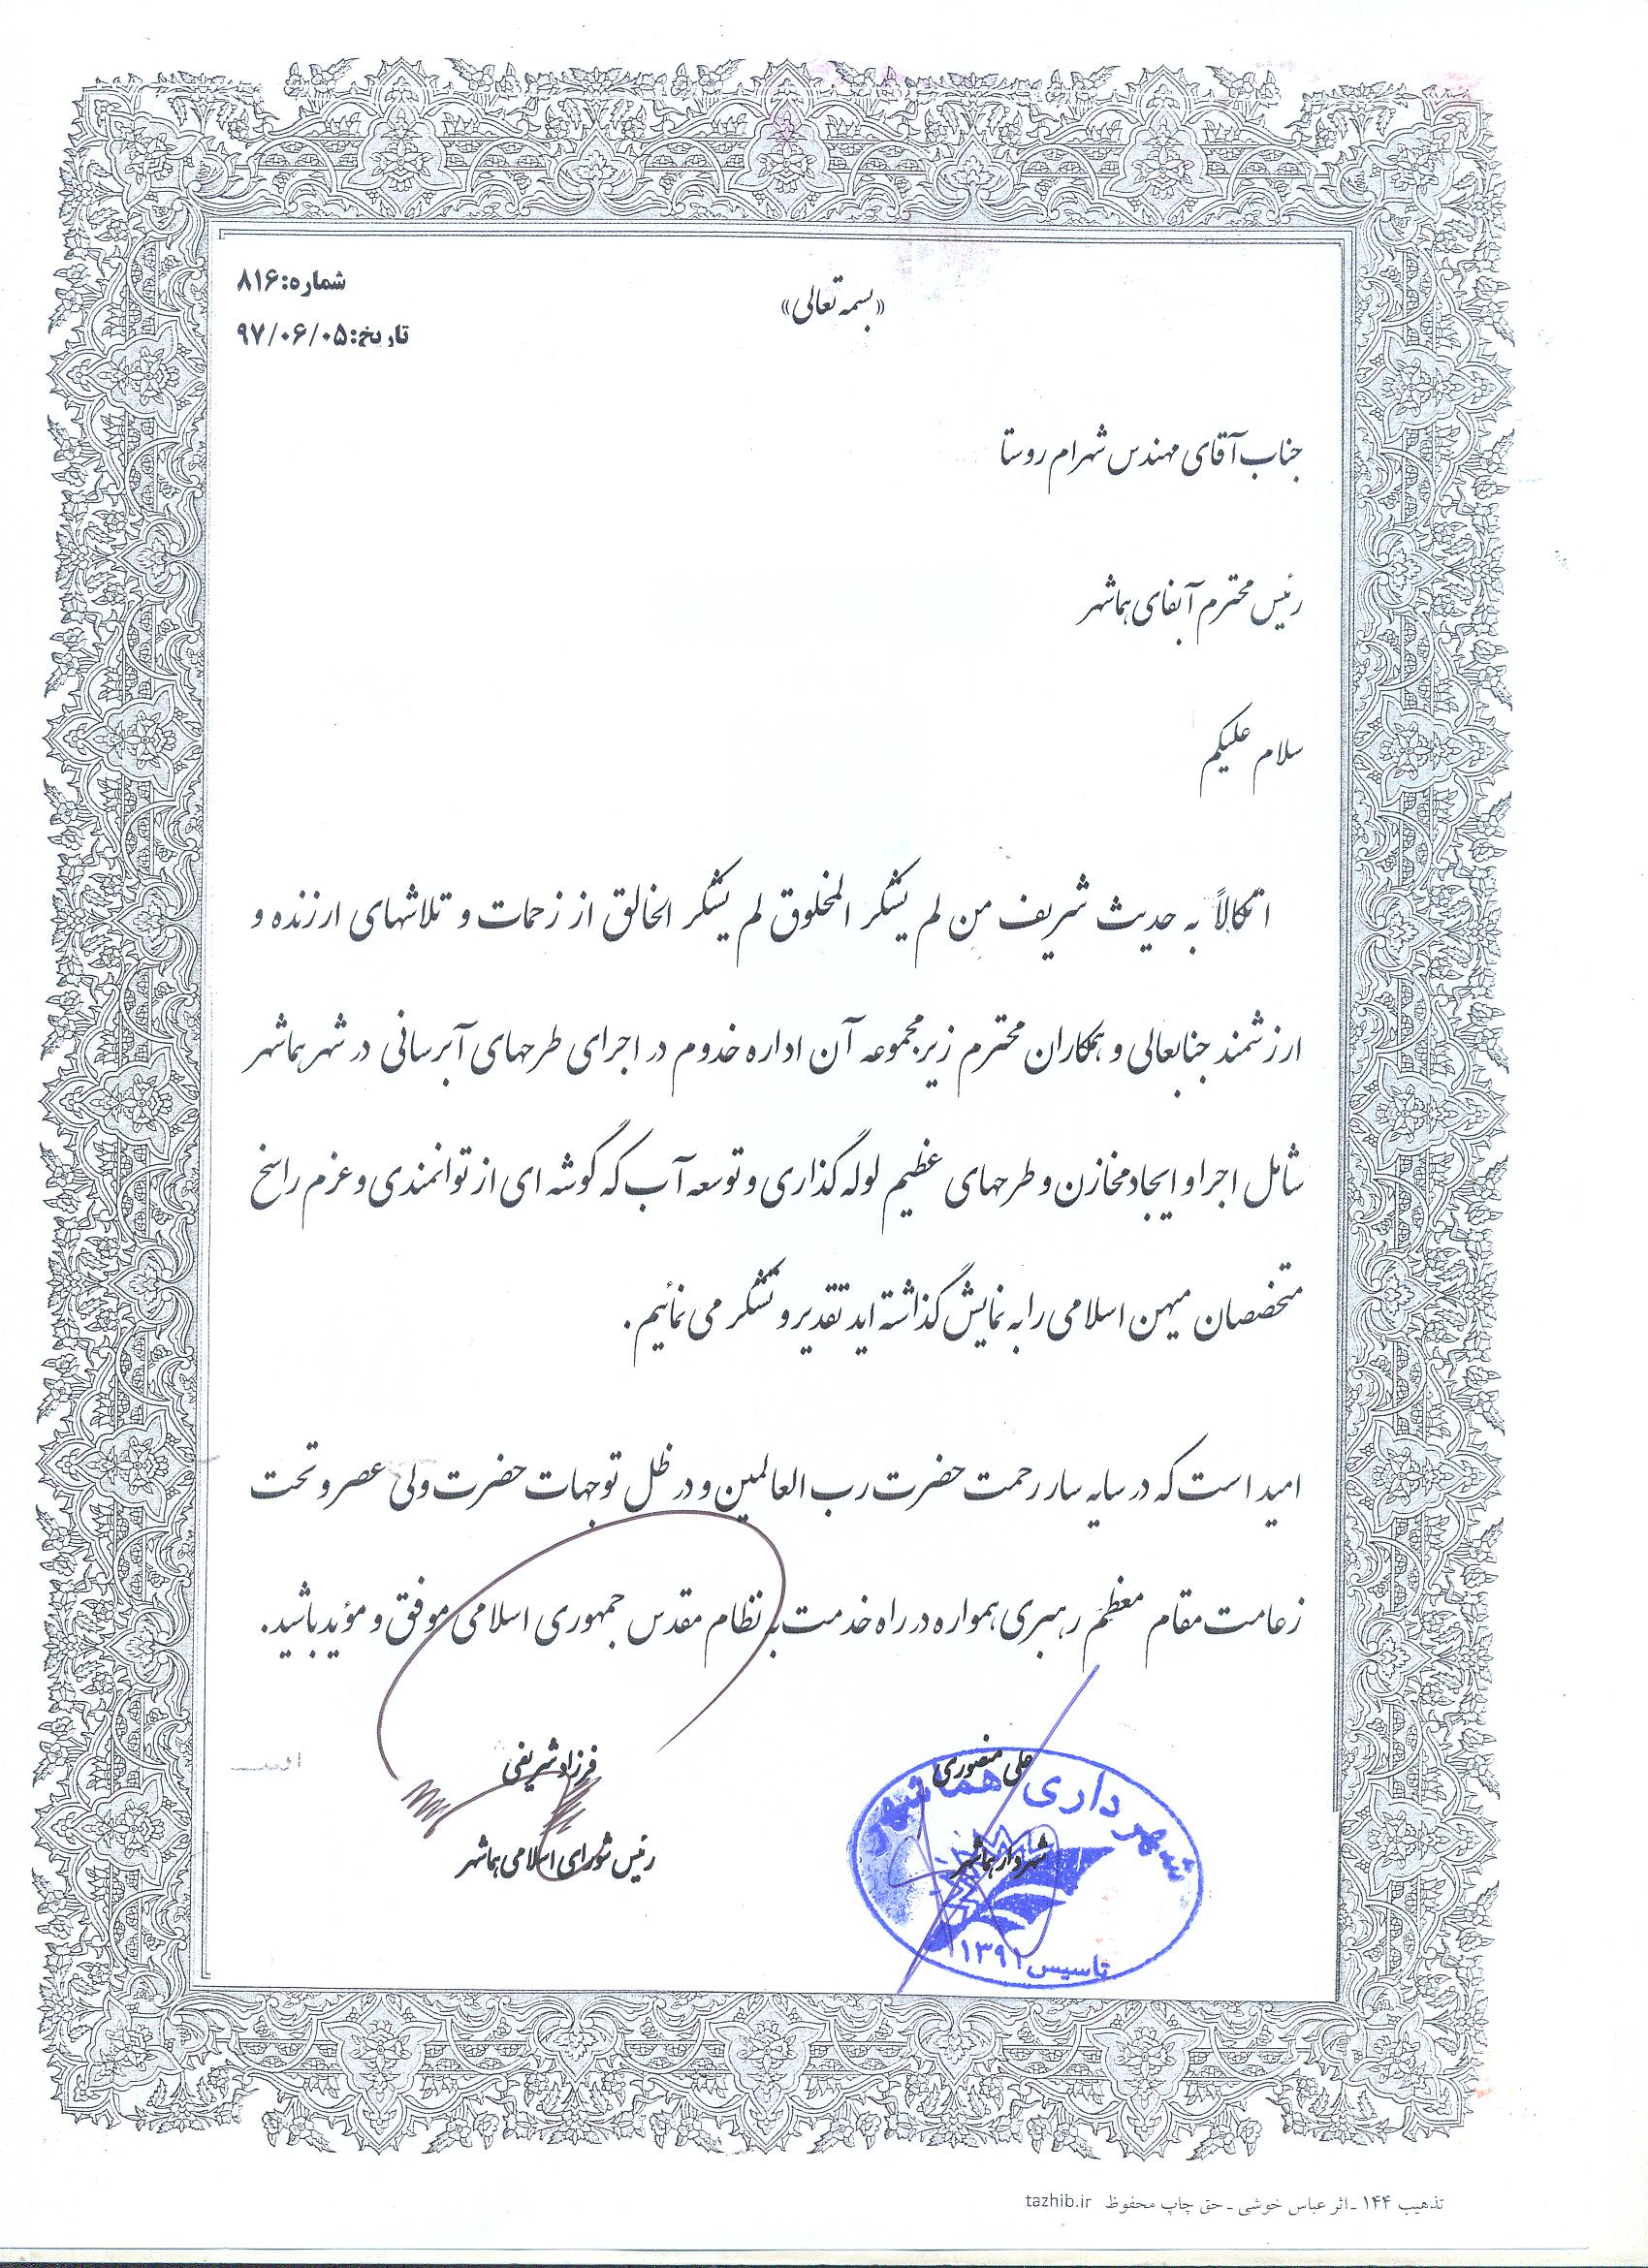 «بسمه تعالی»
شماره: ۸۱۶
تاریخ: ۹۷/۰۶/۰۵
جناب آقای مهندس شهرام روستا
رئیس محترم آبفای هماشهر
سلام علیکم
اتکالاً به حدیث شریف من لم یشکر المخلوق لم یشکر الخالق از زحمات و تلاشهای ارزنده و
ارزشمند جنابعالی و همکاران محترم زیرمجموعه آن اداره خدوم در اجرای طرحهای آبرسانی در شهر هماشهر
شامل اجرا و ایجاد مخازن و طرحهای عظیم لوله گذاری و توسعه آب که گوشه ای از توانمندی و عزم راسخ
متخصصان میهن اسلامی را به نمایش گذاشته اید تقدیر و تشکر می نمائیم.
امید است که در سایه سار رحمت حضرت رب العالمین و در ظل توجهات حضرت ولی عصر و تحت
زعامت مقام معظم رهبری همواره در راه خدمت به نظام مقدس جمهوری اسلامی موفق و مؤید باشید.
علی منصوری
شهردار هماشهر
فرزاد شریفی
رئیس شورای اسلامی هماشهر
شهرداری هماشهر
تاسیس ۱۳۹۲
تذهیب ۱۴۴ - اثر عباس خوشی - حق چاپ محفوظ tazhib.ir